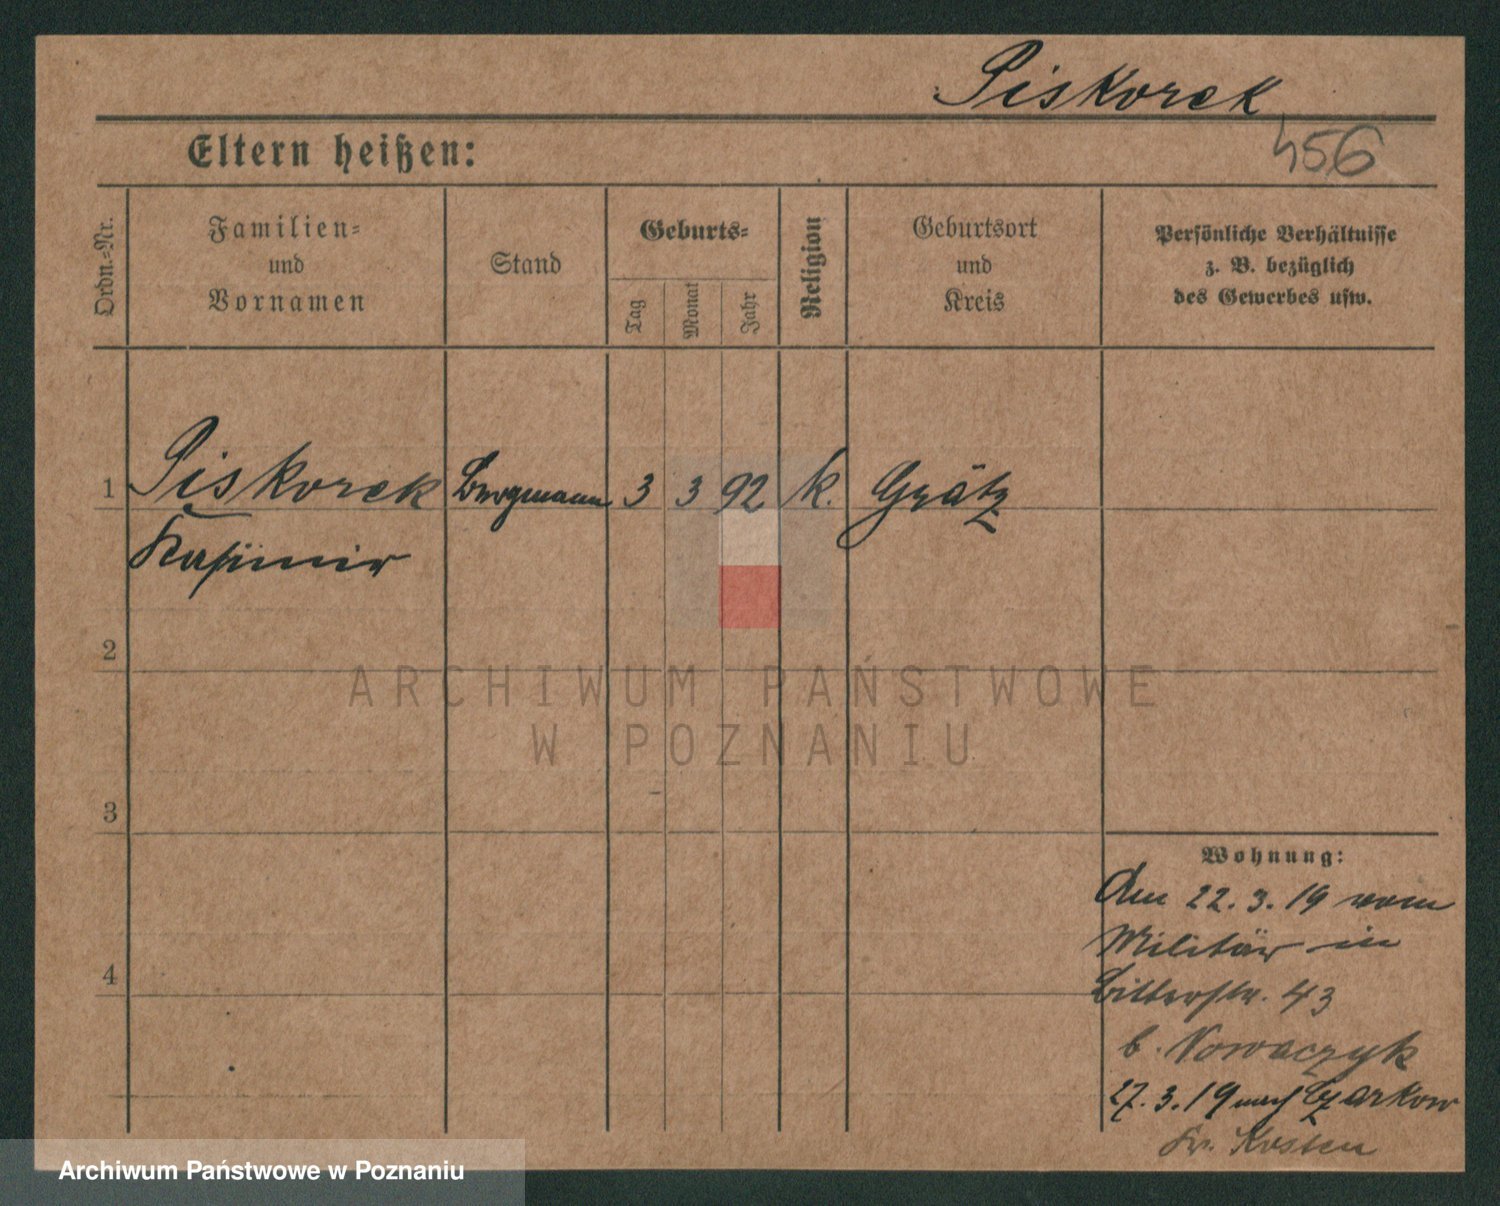 Piskorek
456
Eltern heißen:
Ordn.-Nr.
Familien-
und
Vornamen
Stand
Geburts-
Tag
Monat
Jahr
Religion
Geburtsort
und
Kreis
Persönliche Verhältnisse
z. B. bezüglich
des Gewerbes usw.
1 Piskorek Bergmann 3 3 92 k. Grätz
Kasimir
2
ARCHIWUM PAŃSTWOWE
W POZNANIU
3
Wohnung:
Am 22.3.19 vom
Militär in
Bitterstr. 43
b. Nowaczyk
27.3.19 nach Czarkow
Kr. Kosten
4
Archiwum Państwowe w Poznaniu